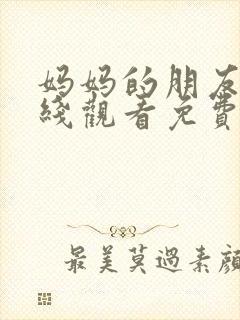 妈妈的朋友
綫觀看免費
最美莫過素顏